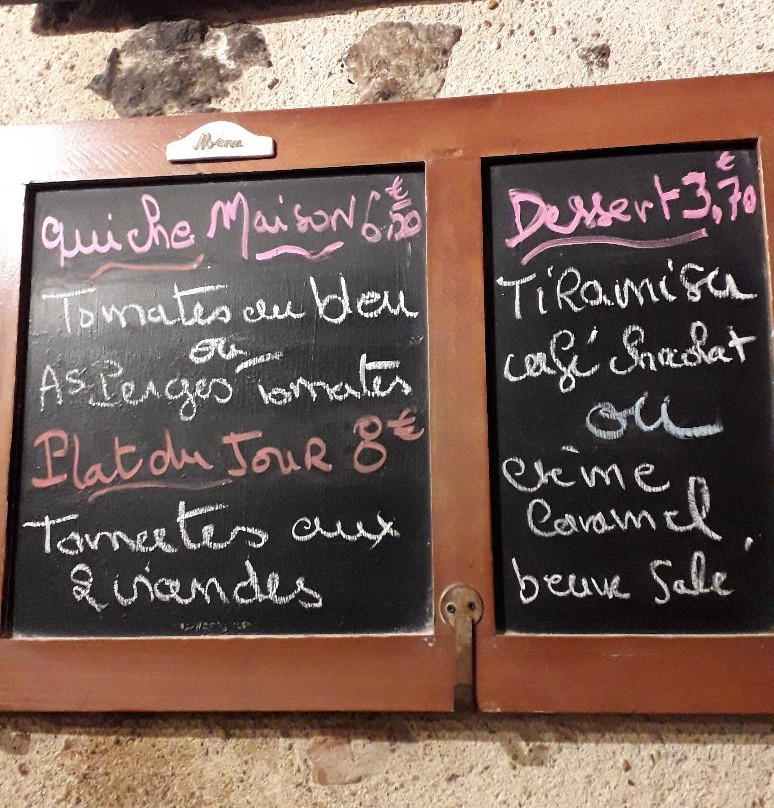 Menu
Quiche Maison 6,20 €
Tomates au bleu
ou
Asperges Tomates
Plat du Jour 8 €
Tomates aux
2 viandes
Dessert 3,70 €
Tiramisu
café chocolat
ou
crème
Caramel
beurre salé